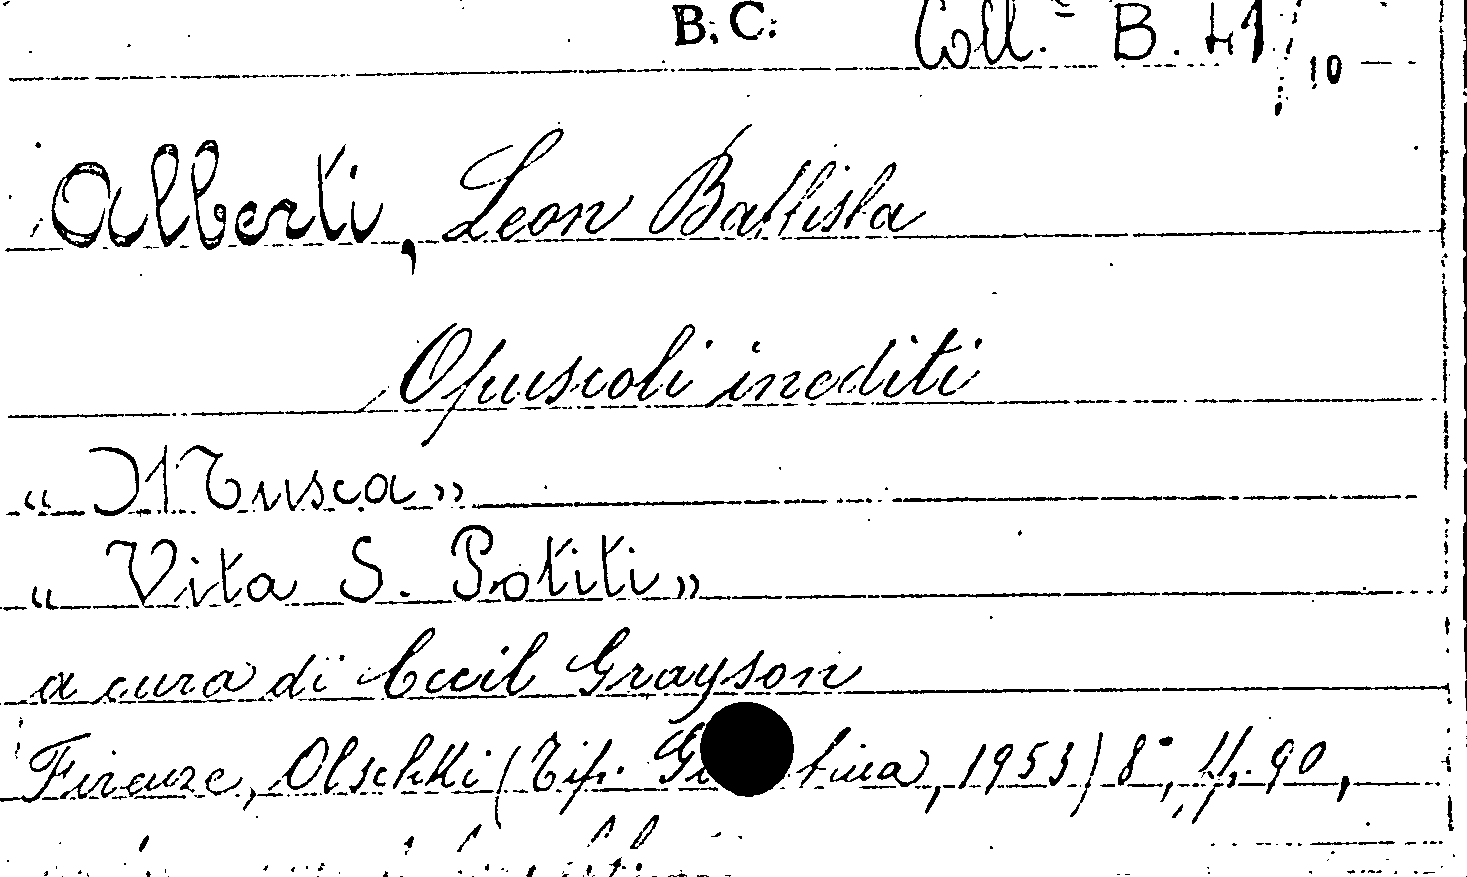 B. C. Coll. B. 41/10
Alberti, Leon Battista
Opuscoli inediti
« Musca »
« Vita S. Potiti »
a cura di Cecil Grayson
Firenze, Olschki (Tip. 1953) 8°, pp. 90,